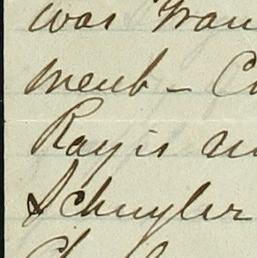 was
ment - C
Ray is an
Schuyler